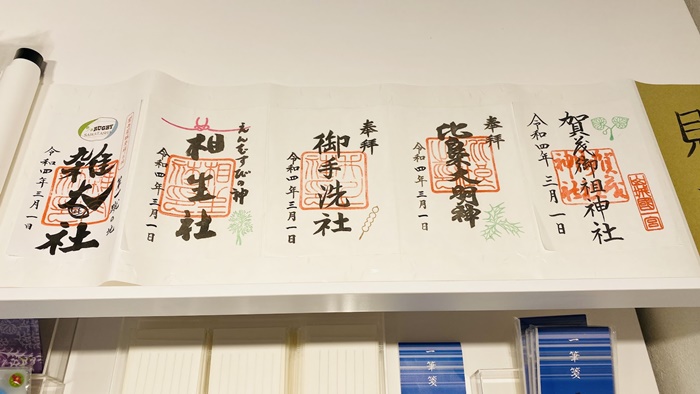 賀茂御祖神社
令和四年三月一日
賀茂
神社
山城国一宮
奉拝
比良木大明神
令和四年三月一日
奉拝
御手洗社
令和四年三月一日
えんむすびの神
相生社
令和四年三月一日
RUGBY
雑太社
令和四年三月一日
一筆箋
一筆箋